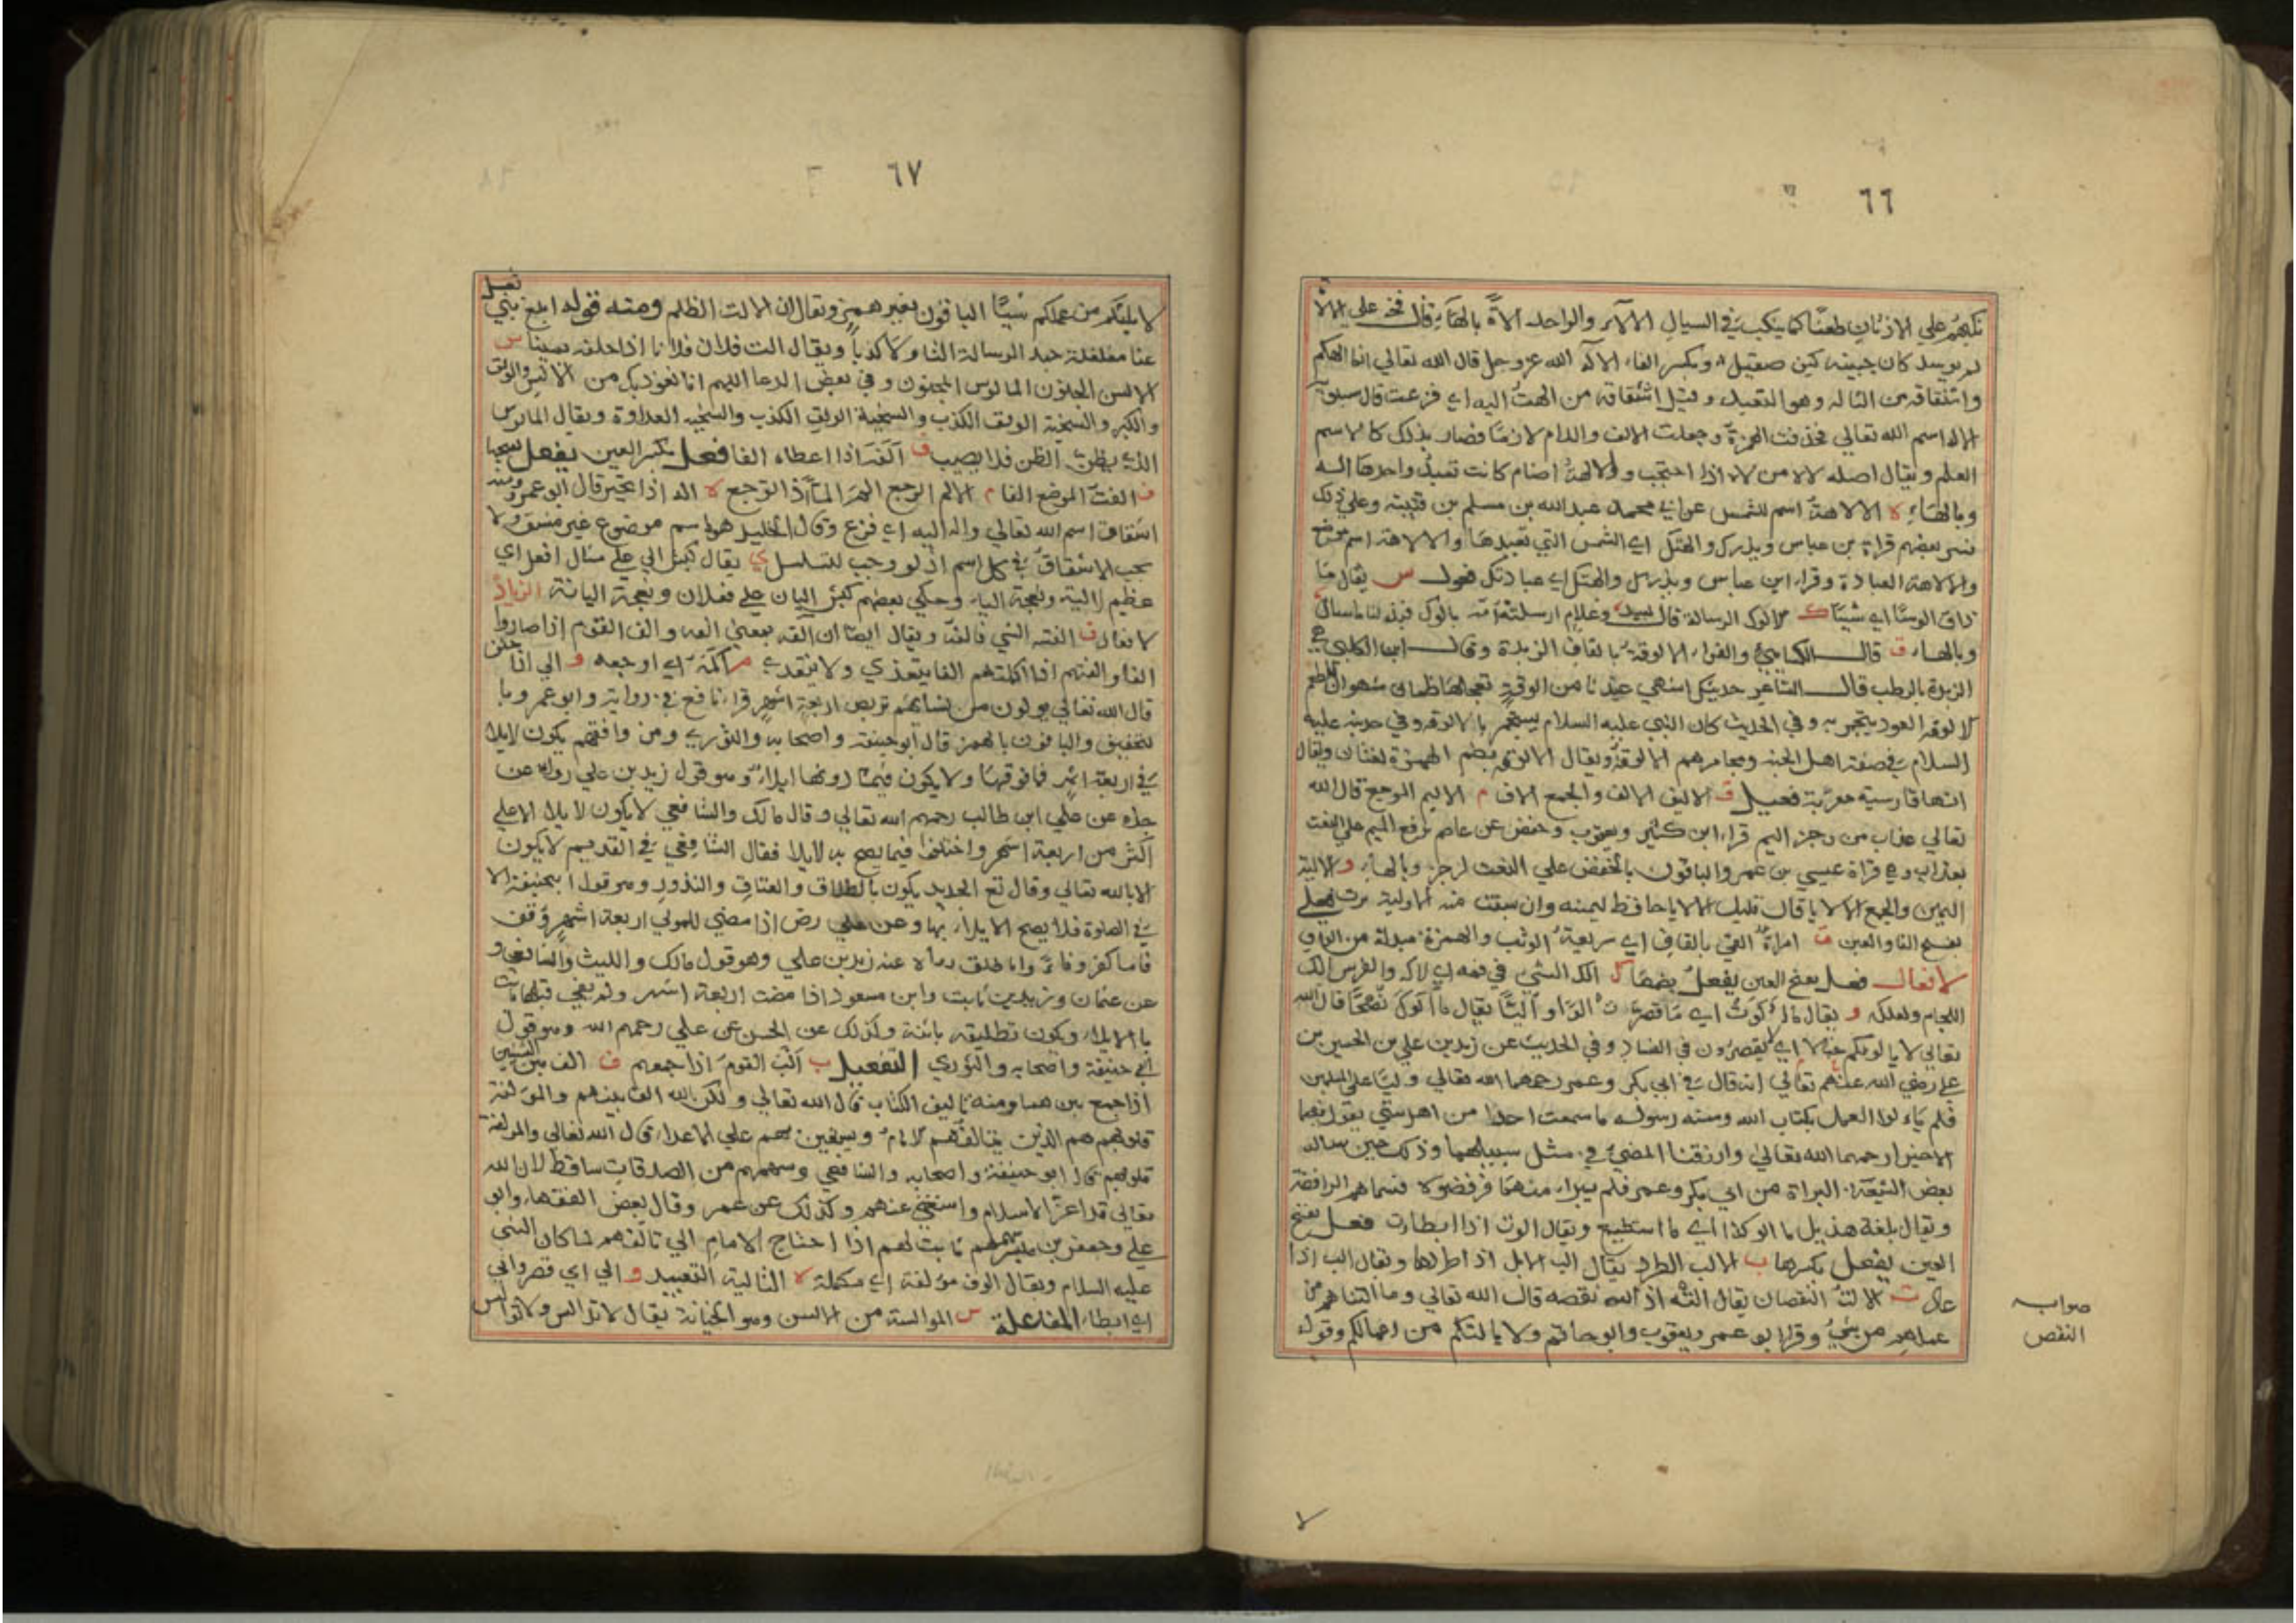 ٦٦
نكبهم على الاذقان طعنا كما ينكب في السيال الآلاء والواحد الاة بالهاء قال فخر على الالا
لم يوسد كان جبينه كبن صقيل وبكسر الفاء الاله الله عز وجل قال الله تعالي انما الهكم
واشتقاقه من التاله وهو التعبد وقيل اشتقاقه من الهت اليه اي فزعت قال سيبويه
الاله اسم الله تعالي فحذفت الهمزة وجعلت الالف واللام لازما فصار بذلك كالاسم
العلم ويقال اصله لاه من لاه اذا احتجب والالهة اصنام كانت تعبد واحدها اله
وبالهاء لا الالاهة اسم للشمس عن ابي محمد عبد الله بن مسلم بن قتيبة وعلي ذلك
فسر بعضهم قراة بن عباس ويذرك والهتك اي الشمس التي تعبدها والالاهة اسم موضع
والالاهة العبادة وقراء ابن عباس ويذرك والهتك اي عبادتك فعول س يقال ما
ذاق الوسا اي شيئا ك الالوك الرسالة قال لبيد وغلام ارسلته امه بالوك فبذلنا ما سال
وبالهاء ق قال الكسائي والفراء الالوقة بالقاف الزبدة وقال ابن الكلبي هي
الزبدة بالرطب قال الشاعر حديثك اشهي عندنا من الوقة تعجلها ظمان شهوان للطعم
الالوة العود يتجمر به وفي الحديث كان النبي عليه السلام يستجمر بالالوة وفي حديثه عليه
السلام في صفة اهل الجنة ومجامرهم الالوة ويقال الالوة بضم الهمزة لغتان ويقال
انها فارسية معربة فعيل ف الاليف الالف والجمع الاف م الاليم الوجع قال الله
تعالي عذاب من رجز اليم قراء ابن كثير ويعقوب وحفص عن عاصم برفع الميم على النعت
بعذاب وهي قراة عيسي بن عمر والباقون بالخفض علي النعت لرجز وبالهاء و الالية
اليمين والجمع الالايا قال قليل الالايا حافظ ليمينه وان سبقت منه الالية برت فعلى
بفتح الفا والعين ق امراة القى بالقاف اي سريعة الوثب والهمزة مبدلة من الواو
الافعال فعل بفتح العين يفعل بضمها ك الك الشي في فمه اي لاكه والفرس الك
اللجام ولعلكه و يقال ما الوت اي ما قصرت الوا واليا يقال ما الوك نصحا قال الله
تعالي لا يالونكم خبالا اي لا يقصرون في الفساد وفي الحديث عن زيد بن علي بن الحسين بن
علي رضي الله عنهم تعالي انه قال في ابي بكر وعمر رحمهما الله تعالي وليا على المسلمين
فلم ياءلوا العمل بكتاب الله وسنة رسوله ما سمعت احدا من اهل بيتي يقول فيهما
الاخيرا رحمهما الله تعالي وارزقنا المضي في مثل سبيلهما وذلك حين ساله
بعض الشيعة البراة من ابي بكر وعمر فلم يبراء منهما فرفضوه فسماهم الرافضة
ويقال بلغة هذيل ما الو كذا اي ما استطيع ويقال الوت اذا ابطات فعل بفتح
العين يفعل بكسرها ب الالب الطرد يقال الب الابل اذا طردها ويقال الب اذا
عاد ت الالت النقصان يقال الته اذ الله نقصه قال الله تعالي وما التناهم من
عملهم من شيء وقرا ابو عمرو ويعقوب وابو حاتم ولا يالتكم من اعمالكم وقوله
صوابه
النقص
٦٧
لا يلتكم من عملكم شيئا الباقون بغير همز ويقال ان الالت الظلم ومنه قوله ابلغ بني ثعل
عنا مغلغلة جهد الرسالة التا ولا كذبا ويقال الت فلان فلانا اذا حلفه يمينا س
الالس الجنون المالوس المجنون وفي بعض الدعا اللهم انا نعوذ بك من الالس والولق
والكبر والسخيمة الولق الكذب والسخيمة العداوة ويقال المالوس
الذي يظن الظن فلا يصيب ف الفه اذا اعطاه الفا فعل بكسر العين يفعل بفتحها
ف الفت الموضع الفا م الالم الوجع الم الما اذا توجع لا اله اذا تحير قال ابو عمرو ومنه
اشتقاق اسم الله تعالي واله اليه اي فزع وقال الخليل هو اسم موضوع غير مشتق ولا
يجب الاشتقاق في كل اسم اذ لو وجب لتسلسل ي يقال كبش الي علي مثال افعل اي
عظيم الالية ونعجة الياء وحكي بعضهم كبش اليان علي فعلان ونعجة اليانة الزيادة
الافعال ف الفته الشي فالفه ويقال ايضا ان الفه بمعني الفه والف القوم اذا صاروا
الفا والفتهم اذا اكملتهم الفا يتعدي ولا يتعدي م المه اي اوجعه و الي اذا حلف
قال الله تعالي يولون من نسائهم تربص اربعة اشهر قراء نافع في رواية وابو عمرو با
لتخفيف والباقون بالهمز قال ابو حنيفة واصحابه والثوري ومن وافقهم يكون الايلا
في اربعة اشهر فما فوقها ولا يكون فيما دونها ايلاء وهو قول زيد بن علي رواه عن
جده عن علي ابن طالب رحمهم الله تعالي وقال مالك والشافعي لا يكون لايلا الا علي
اكثر من اربعة اشهر واختلفوا فيما يصح به الايلا فقال الشافعي في القديم لا يكون
الا بالله تعالي وقال في الجديد يكون بالطلاق والعتاق والنذور وهو قول ابيحنيفة الا
في الصلوة فلا يصح الايلاء بها وعن علي رض اذا مضي للمولي اربعة اشهر وقف
فاما كفر وفاء واما طلق رواه عنه زيد بن علي وهو قول مالك والليث والشافعي و
عن عثمان وزيد بن ثابت وابن مسعود اذا مضت اربعة اشهر ولم يفئ قبلها بانت
بالايلاء ويكون تطليقة بائنة وكذلك عن الحسن عن علي رحمهم الله وهو قول
ابي حنيفة واصحابه والثوري التفعيل ب الب القوم اذا جمعهم ف الف بين الشيئين
اذا جمع بينهما ومنه تاليف الكتاب قال الله تعالي ولكن الله الف بينهم والمؤلفة
قلوبهم هم الذين يتالفهم الامام ويستعين بهم علي الاعداء قال الله تعالي والمولفة
قلوبهم قال ابو حنيفة واصحابه والشافعي وسهمهم من الصدقات ساقط لان الله
تعالي قد اعز الاسلام واستغني عنهم وكذلك عن عمر وقال بعض الفقهاء وابو
علي وجعفر بن مبشر سهمهم ثابت لهم اذا احتاج الامام الي تالفهم كما كان النبي
عليه السلام ويقال الوف مؤلفة اي مكملة لا التاليه التعبيد و الي اي قصر والي
اي ابطاء المفاعلة س الموالسة من الالس وهو الخيانة يقال لا تدالس ولا توالس